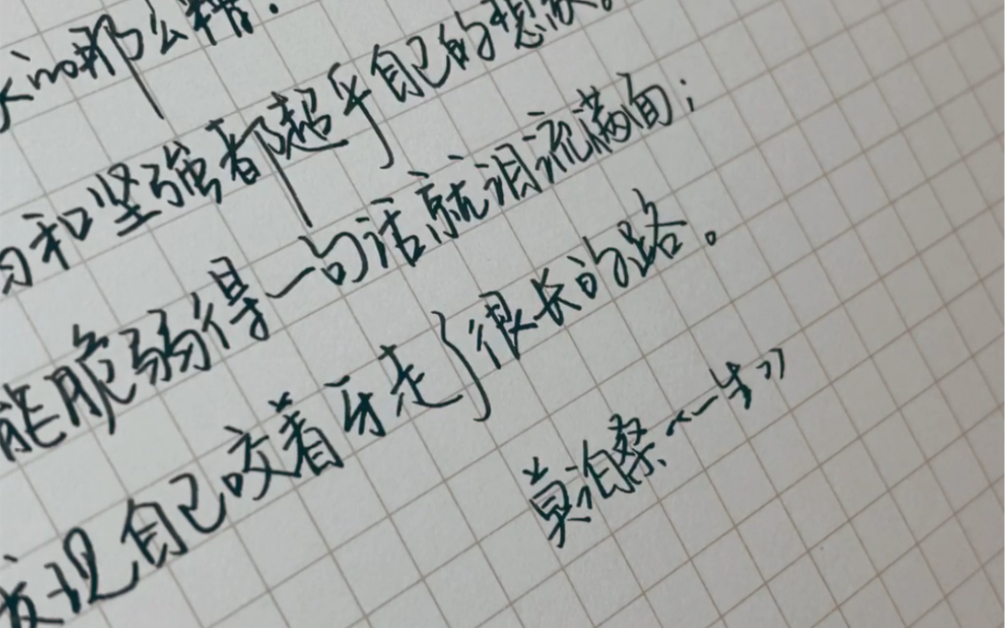 的那么糟.
和坚强都超乎自己的想象。
能脆弱得一句话就泪流满面；
发现自己咬着牙走了很长的路。
莫泊桑《一生》